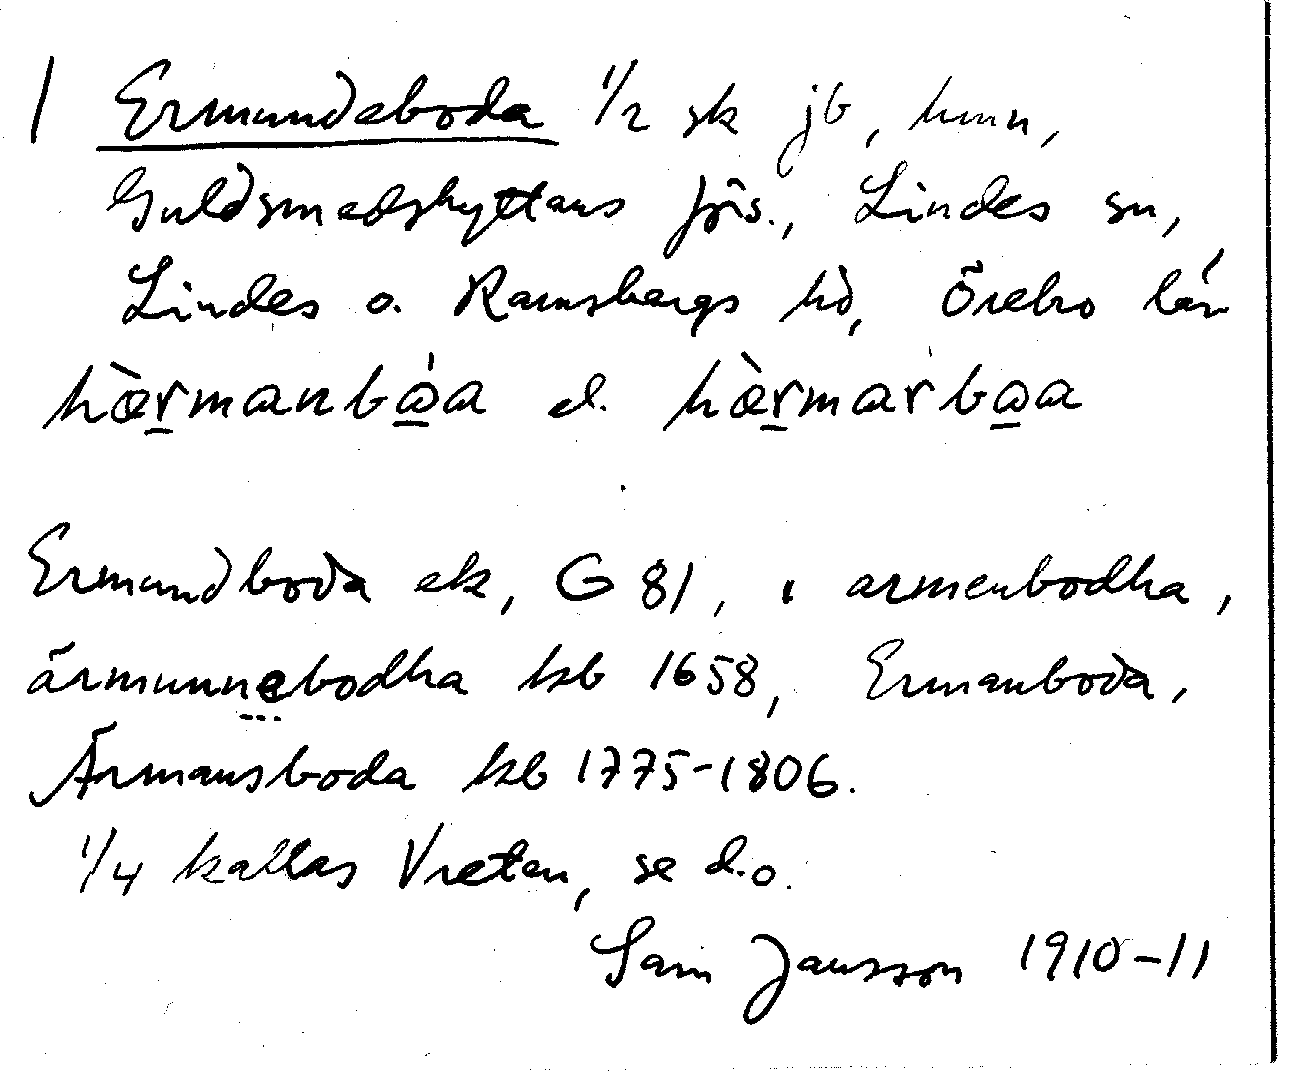 1 Ermundeboda 1/2 sk jb, hmn,
Guldsmedshyttans förs., Lindes sn,
Lindes o. Ramsbergs hd, Örebro län
hæ̀r̲manbὼ̲a el. hæ̀r̲marbω̲a
Ermundboda ek, G 81, armenbodha,
ärmunnebodha kb 1658, Ermanboda,
Ärmansboda kb 1775-1806.
1/4 kallas Vreten, se d.o.
Sam Jansson 1910-11